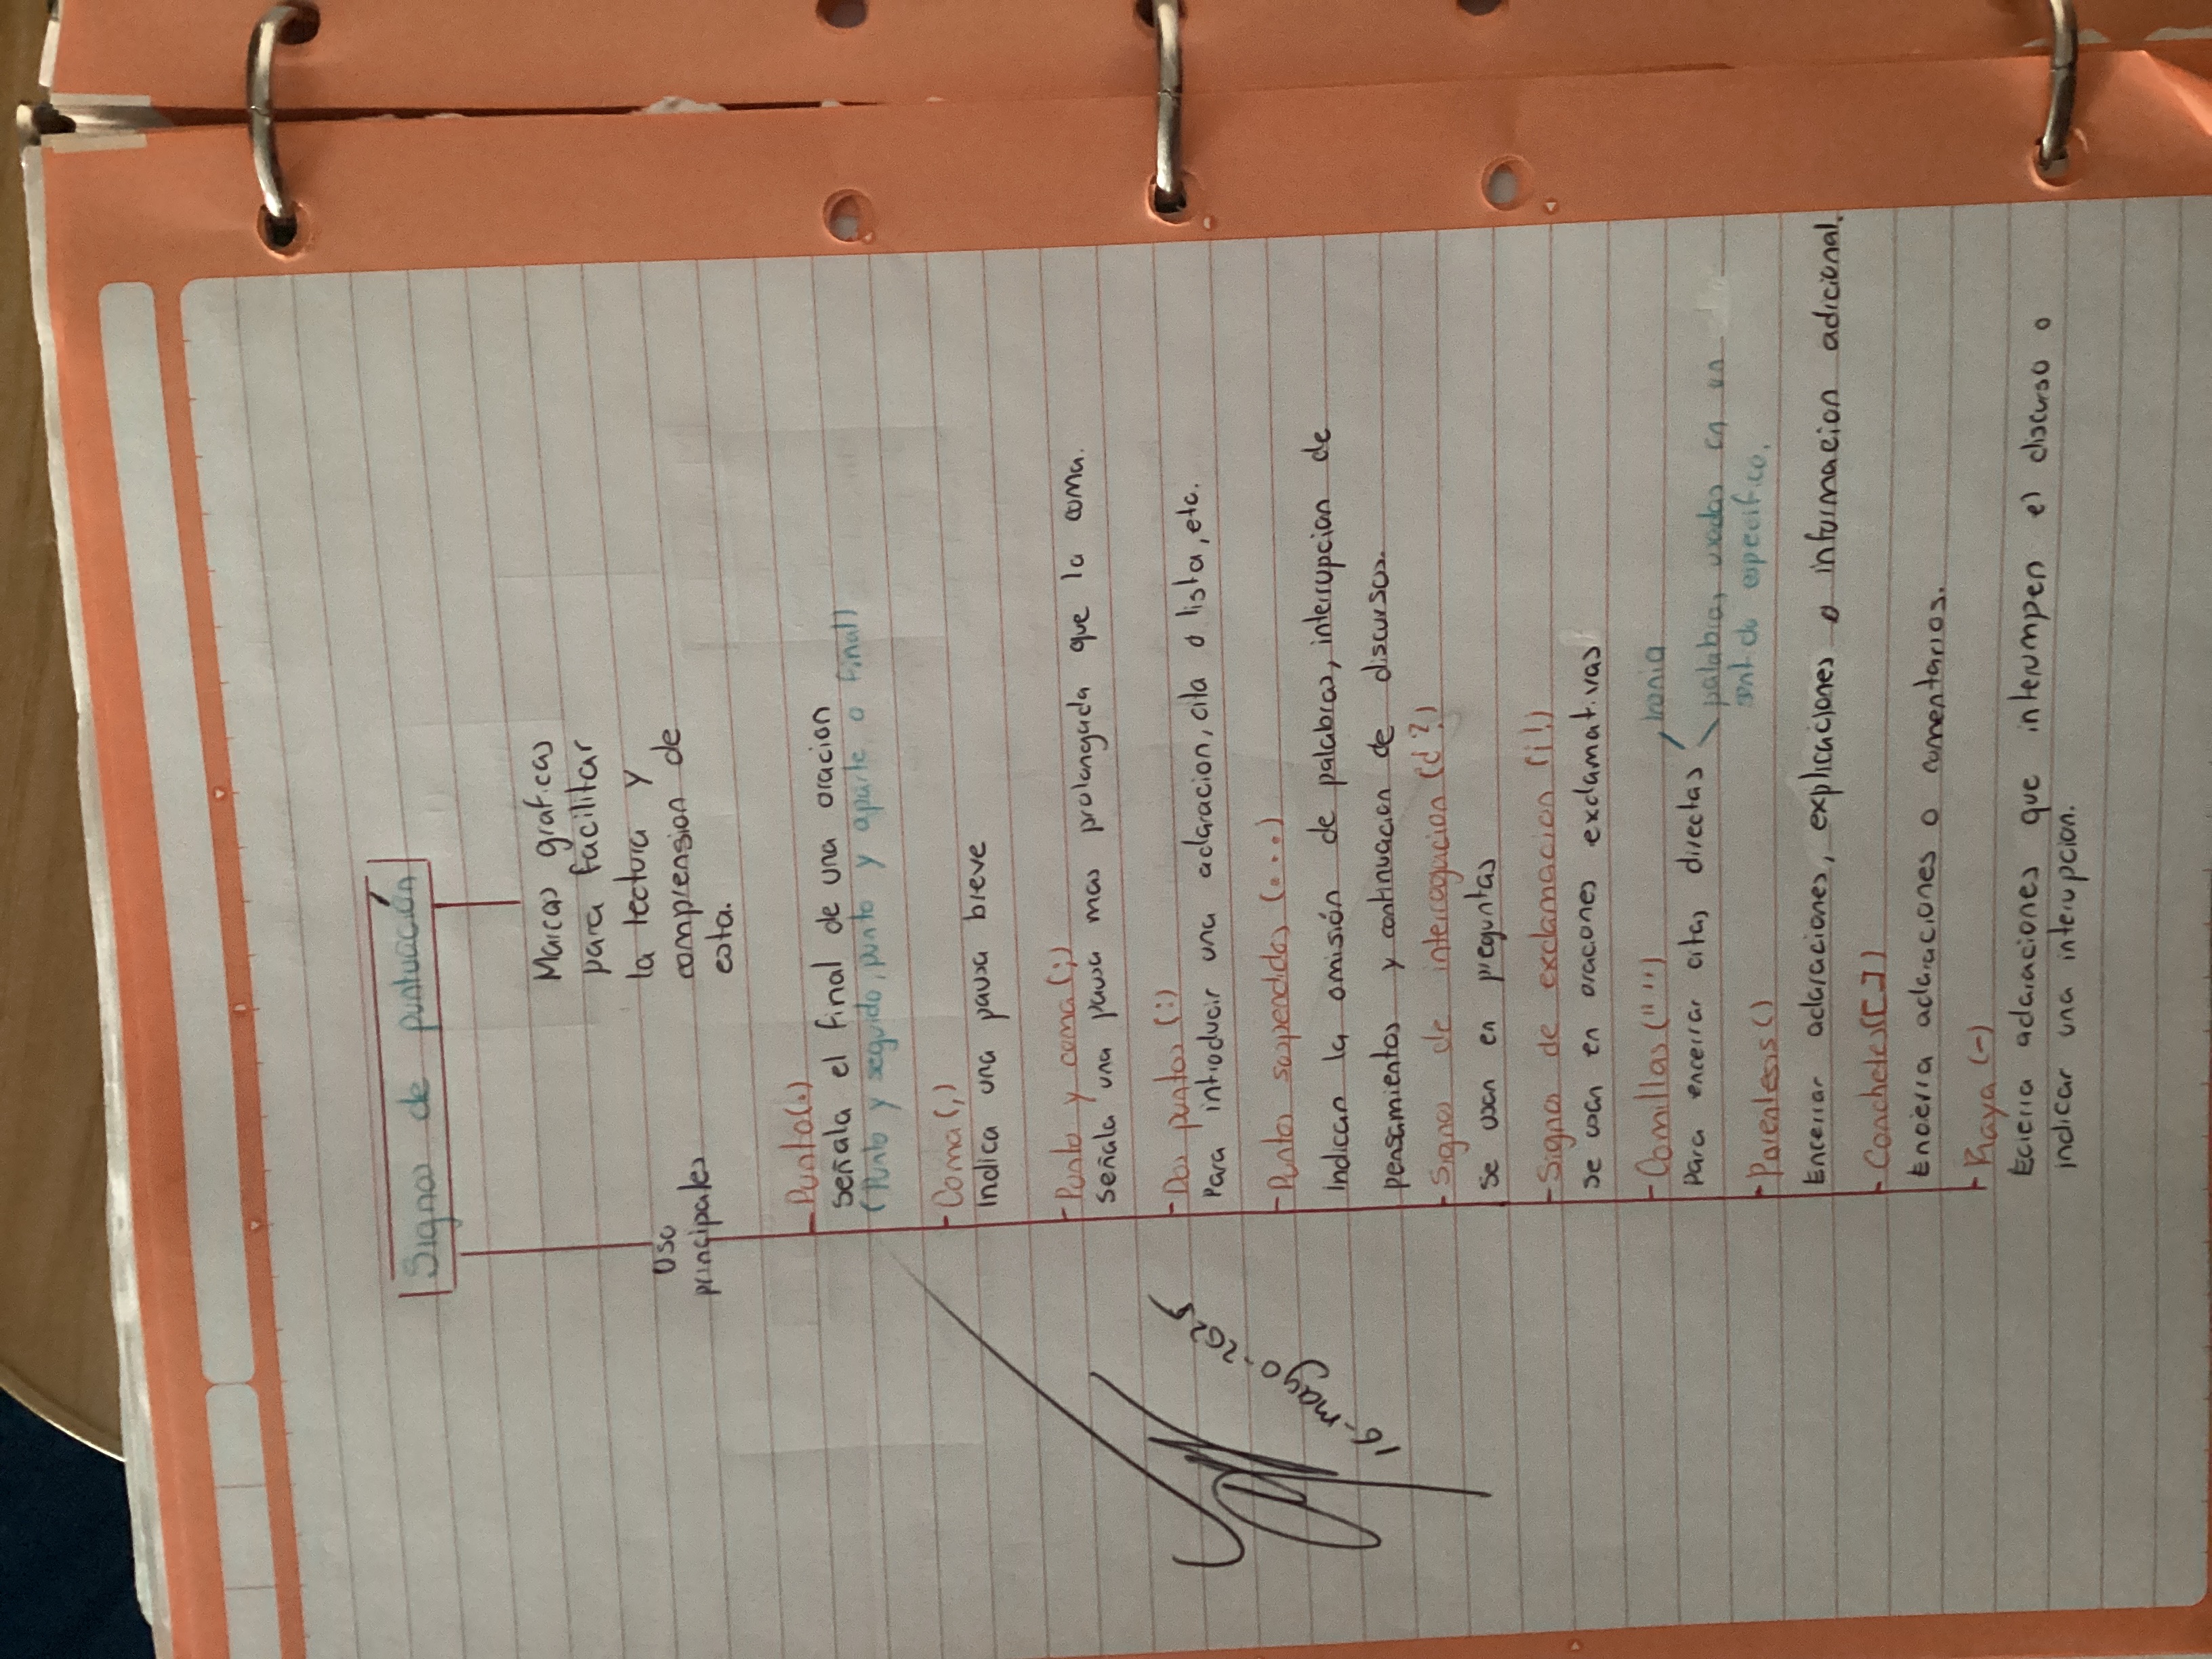 Signos de puntuación
Marcas graficas
para facilitar
la lectura y
comprension de
esta.
Uso
principales
- Punto(.)
Señala el final de una oracion
(Punto y seguido, punto y aparte o final)
- Coma(,)
Indica una pausa breve
- Punto y coma(;)
Señala una pausa mas prolangada que la coma.
- Dos puntos (:)
Para introducir una aclaracion, cita o lista, etc.
- Puntos suspendidos (....)
Indican la omisión de palabras, interrupcion de
pensamientos y continuacion de discursos.
- Signos de interrogacion (¿?)
Se usan en preguntas
- Signos de exclamacion (¡!)
Se usan en oraciones exclamativas
- Comillas (" ")
Para encerrar citas directas
Ironia
palabras usadas en un
sentido especifico.
- Parentesis ()
Encerrar aclaraciones, explicaciones o informacion adicional.
- Conchetes([])
Encierra aclaraciones o comentarios.
- Raya (-)
Ecierra aclaraciones que interrumpen el discurso o
indicar una interupcion.
16-mayo-2025